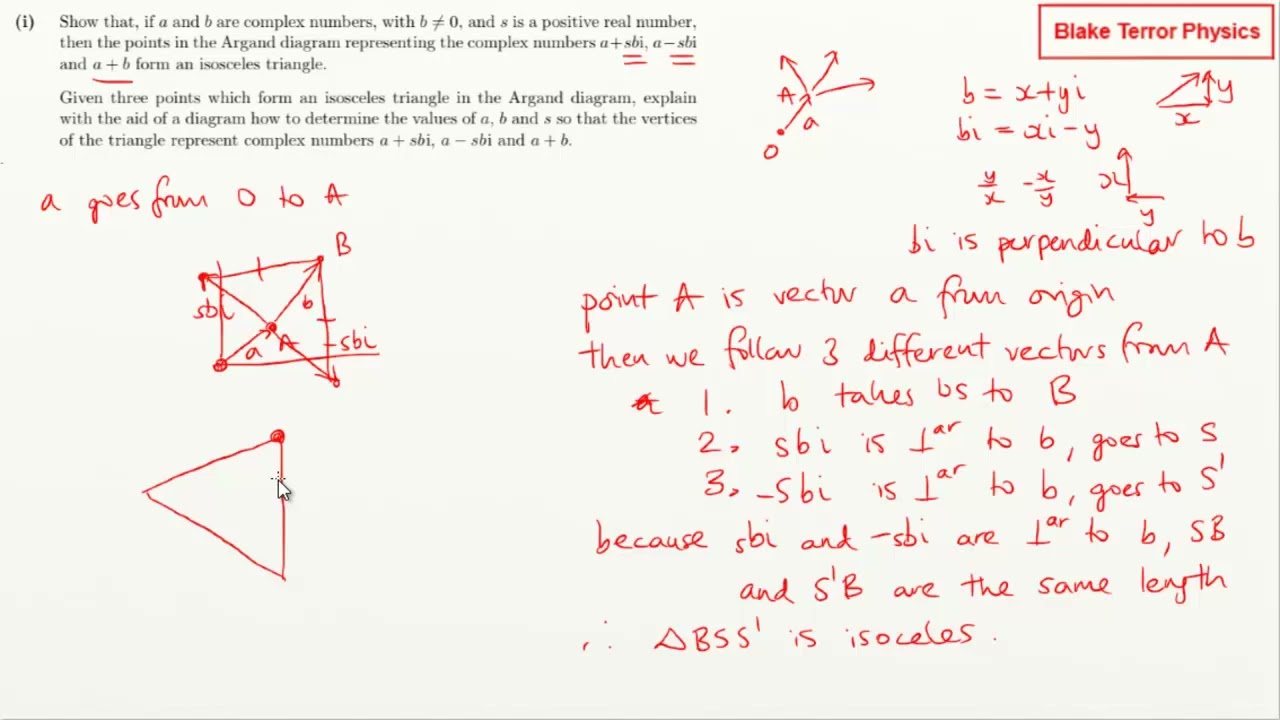 (i) Show that, if a and b are complex numbers, with b ≠ 0, and s is a positive real number,
then the points in the Argand diagram representing the complex numbers a+sbi, a−sbi
and a + b form an isosceles triangle.
Given three points which form an isosceles triangle in the Argand diagram, explain
with the aid of a diagram how to determine the values of a, b and s so that the vertices
of the triangle represent complex numbers a + sbi, a − sbi and a + b.
Blake Terror Physics
A
a
O
b = x+yi
bi = xi-y
y
x
y/x -x/y
x
y
bi is perpendicular to b
a goes from O to A
B
sbi
b
a
A
-sbi
point A is vector a from origin
then we follow 3 different vectors from A
1. b takes us to B
2. sbi is ⊥ar to b, goes to S
3. -sbi is ⊥ar to b, goes to S'
because sbi and -sbi are ⊥ar to b, SB
and S'B are the same length
∴ △BSS' is isoceles.